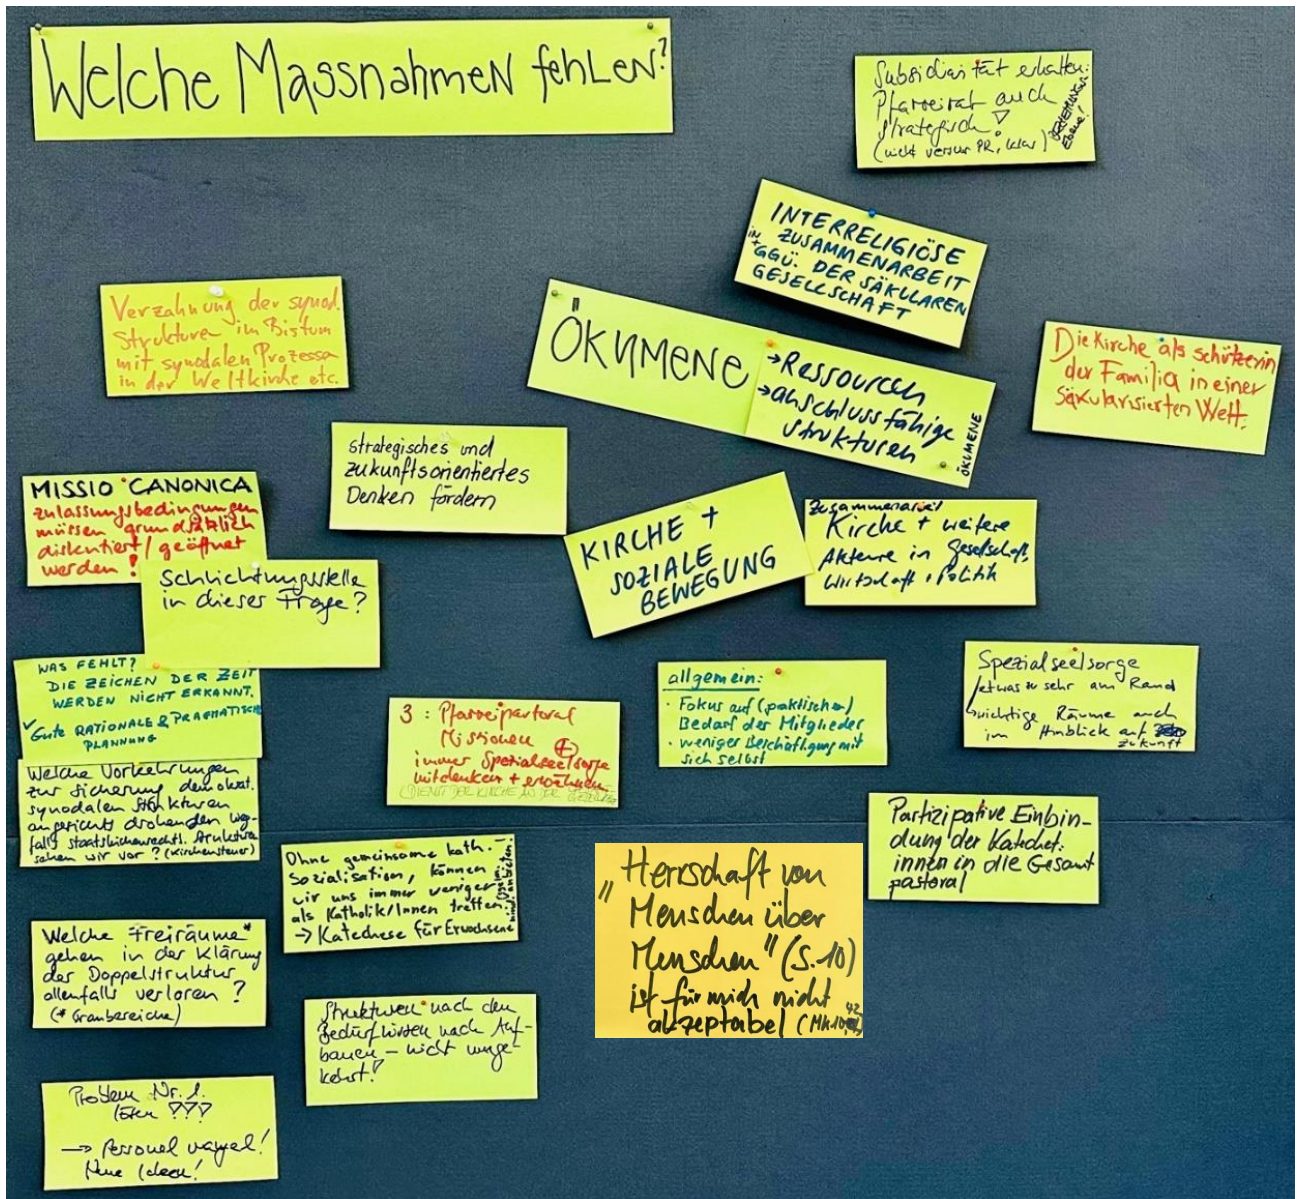 Welche Massnahmen fehlen?
Subsidiarität erhalten:
Pfarreirat auch
strategisch!
(nicht versus PR, klar)
Ebene!
INTERRELIGIÖSE
ZUSAMMENARBEIT
IN +
GGÜ. DER SÄKULAREN
GESELLSCHAFT
Verzahnung der synod.
Strukturen im Bistum
mit synodalen Prozessen
in der Weltkirche etc.
ÖKUMENE
→Ressourcen
→anschlussfähige
Strukturen
ÖKUMENE
Die Kirche als schützerin
der Familia in einer
säkularisierten Welt.
strategisches und
zukunftsorientiertes
Denken fördern
MISSIO CANONICA
zulassungsbedingungen
müssen grundsätzlich
diskutiert/geöffnet
werden!
Schlichtungsstelle
in dieser Frage?
KIRCHE +
SOZIALE
BEWEGUNG
Zusammenarbeit
Kirche + weitere
Akteure in Gesellschaft,
Wirtschaft + Politik
WAS FEHLT?
DIE ZEICHEN DER ZEIT
WERDEN NICHT ERKANNT.
✓ Gute RATIONALE & PRAGMATISCHE
PLANNUNG
3 : Pfarreipastoral
Missionen
immer Spezialseelsorge
mitdenken + erwähnen
(DIENST DER KIRCHE AN DER
allgemein:
· Fokus auf (praktischen)
Bedarf der Mitglieder
· weniger Beschäftigung mit
sich selbst
Spezialseelsorge
etwas zu sehr am Rand
wichtige Räume auch
im Hinblick auf
Zukunft
Welche Vorkehrungen
zur Sicherung demokrat.
synodalen Strukturen
angesichts drohenden Weg-
falls staatskirchenrechtl. Strukturen
sehen wir vor? (Kirchensteuer)
Ohne gemeinsame kath.
Sozialisation, können
wir uns immer weniger
als Katholik/Innen treffen.
→ Katechese für Erwachsene
Partizipative Einbin-
dung der Katechet:
innen in die Gesamt
pastoral
„Herrschaft von
Menschen über
Menschen" (S.10)
ist für mich nicht
akzeptabel (Mk 10, 42)
Welche Freiräume*
gehen in der Klärung
der Doppelstruktur
allenfalls verloren?
(* Graubereiche)
Strukturen nach den
Bedürfnissen nach Auf-
bauen – nicht umge-
kehrt!
Problem Nr. 1.
lösen ???
→ Personalmangel!
Neue Ideen!